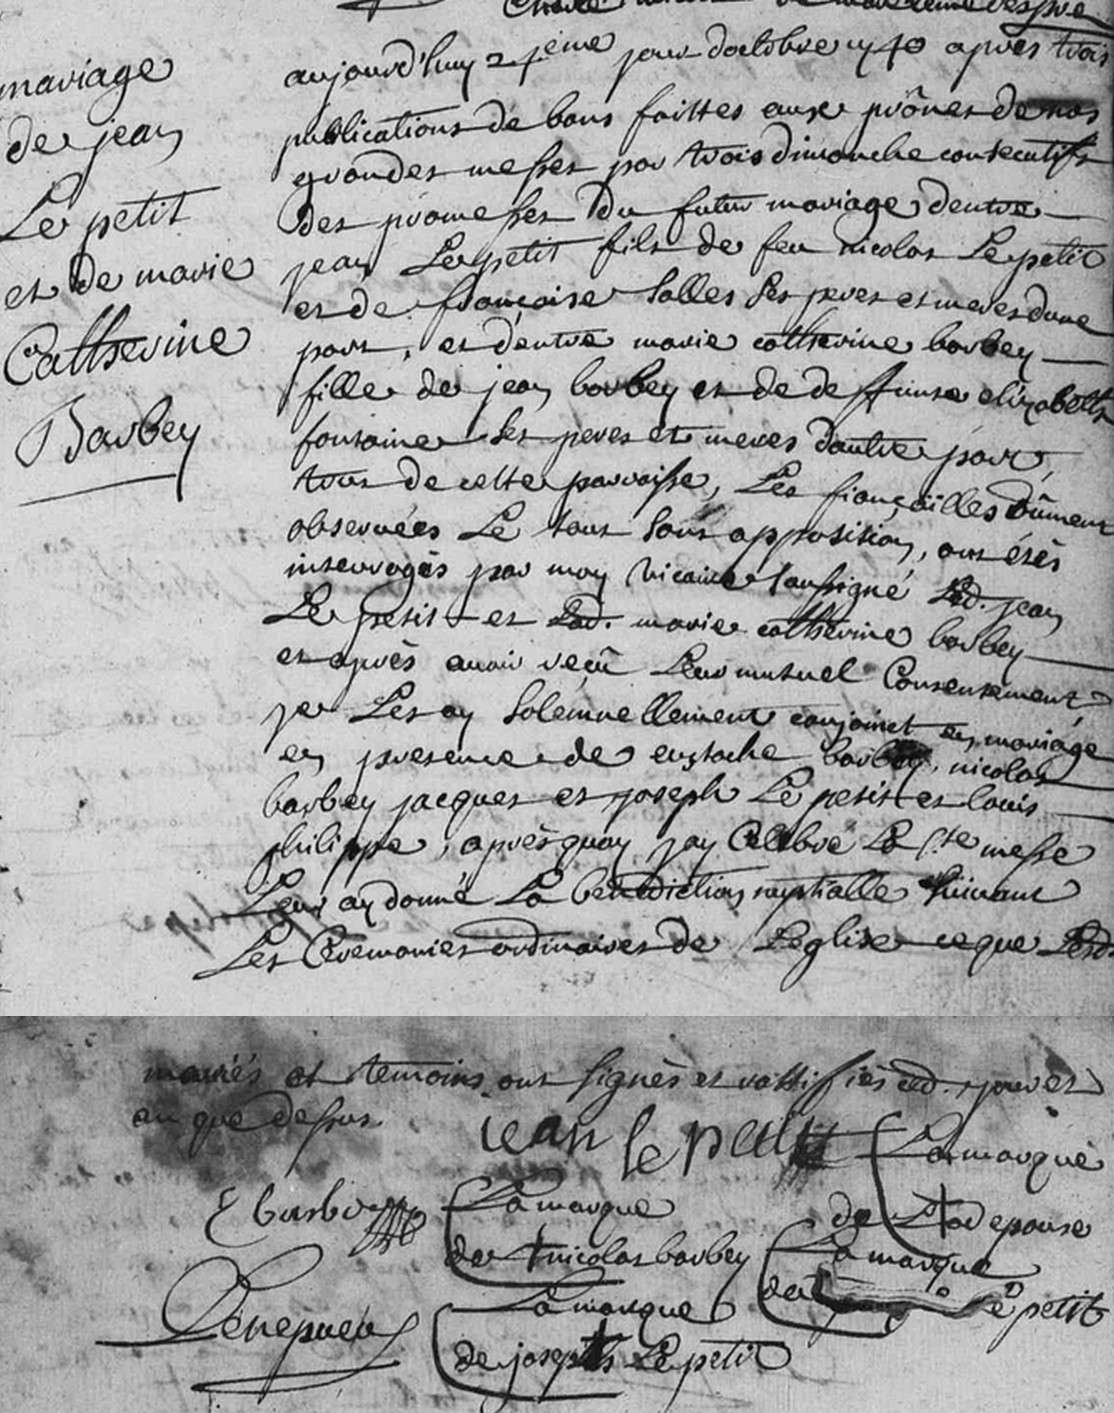 mariage
de jean
Le petit
et de marie
Catherine
Barbey
aujourd'huy 24eme jour doctobre 1740 apres trois
publications de bans faittes aux prônes de nos
grandes messes par trois dimanche consecutifs
des promesses du futur mariage dentre
jean Le petit fils de feu nicolas Le petit
et de françoise Salles Ses peres et meres dune
part, et dentre marie catherine barbey
fille de jean barbey et de deffunse elizabeth
fontaine Ses peres et meres dautre part,
tous de cette parroisse, Les fiançailles dûment
observées Le tout Sans opposition, ont étés
interrogés par moy vicaire Soussigné Led. jean
Le petit et Lad. marie catherine barbey
et après avoir reçû Leur mutuel Consentement
je Les ay Solemnellement conjoinct en mariage
en presence de eustache barbey, nicolas
barbey jacques et joseph Le petit et louis
philippe, après quoy jay Celebré La Ste messe
Leur ay donné La benediction nuptialle Suivant
Les Ceremonies ordinaires de L'eglise ce que Lesd.
mariés et temoins ont signés et rattifiés led. jour et
an que dessus.
jean le petit
La marque
de Lad epouse
E barbey
La marque
de nicolas barbey
La marque
de Le petit
La marque
de joseph Le petit